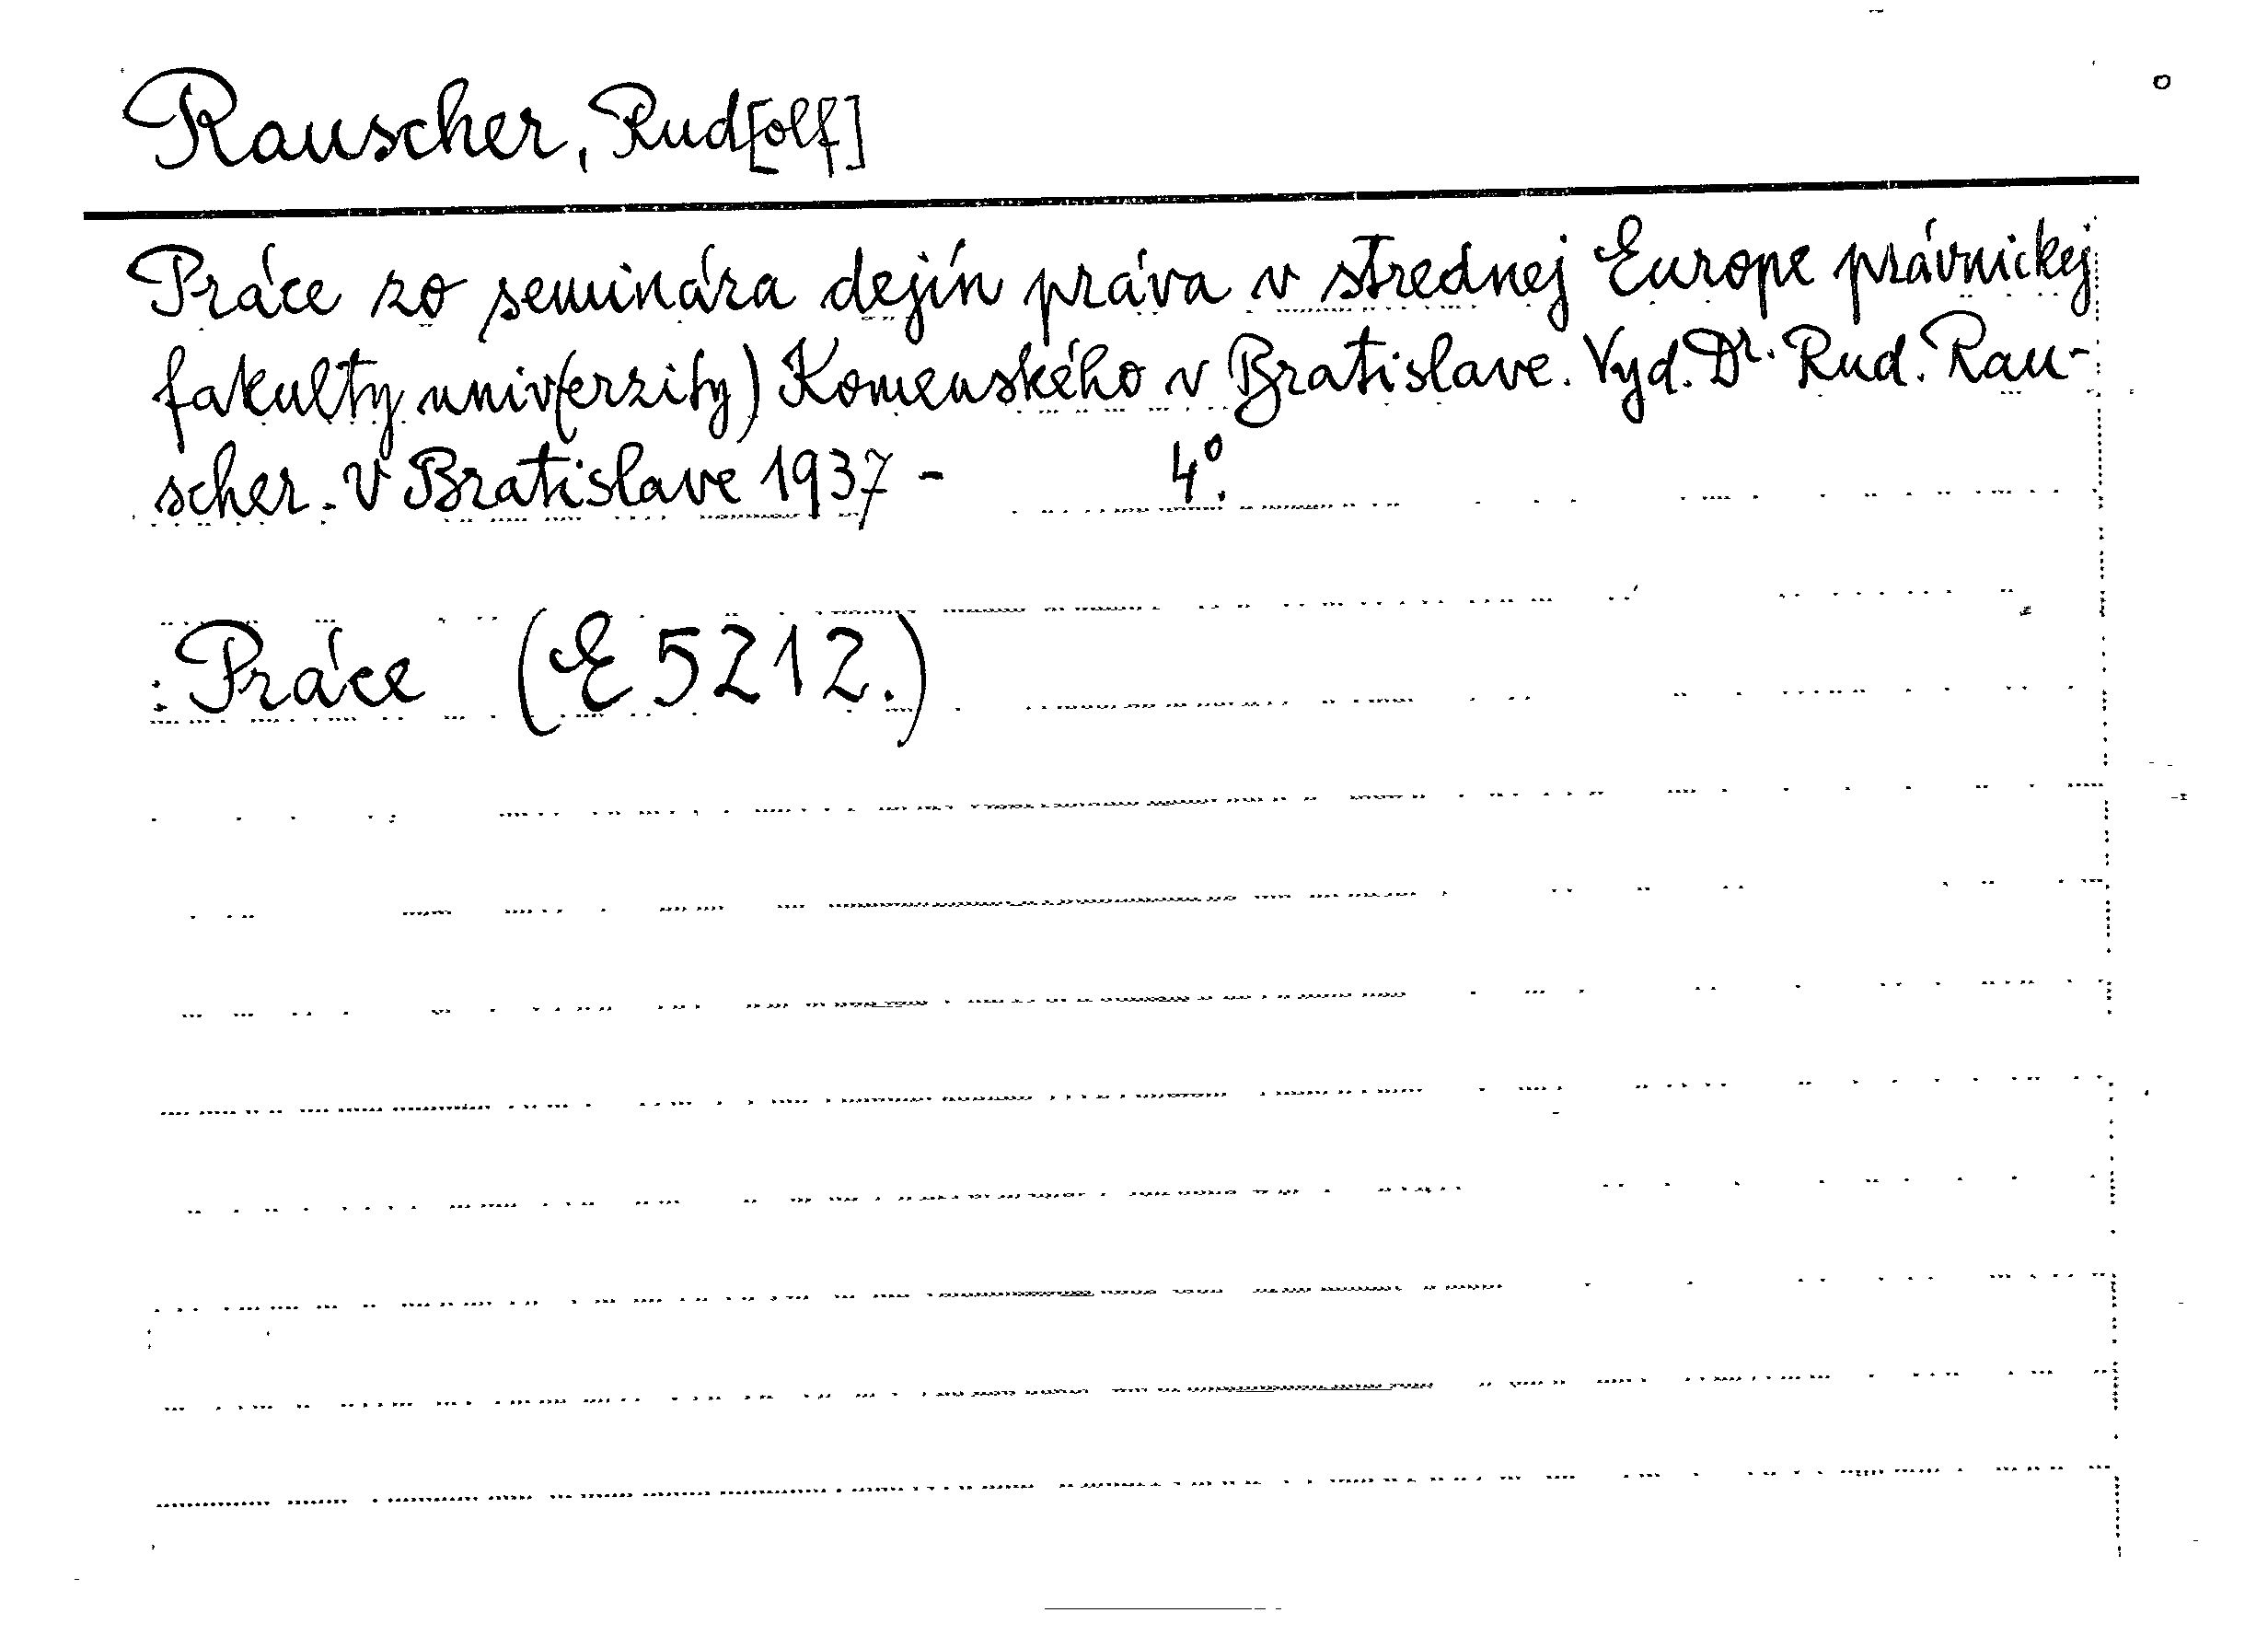 Rauscher, Rud[olf]
Práce zo seminára dejín práva v strednej Europe právnickej
fakulty univ(erzity) Komenského v Bratislave. Vyd. Dr. Rud. Rau-
scher. V Bratislave 1937 - 4º.
: Práce (E 5212.)